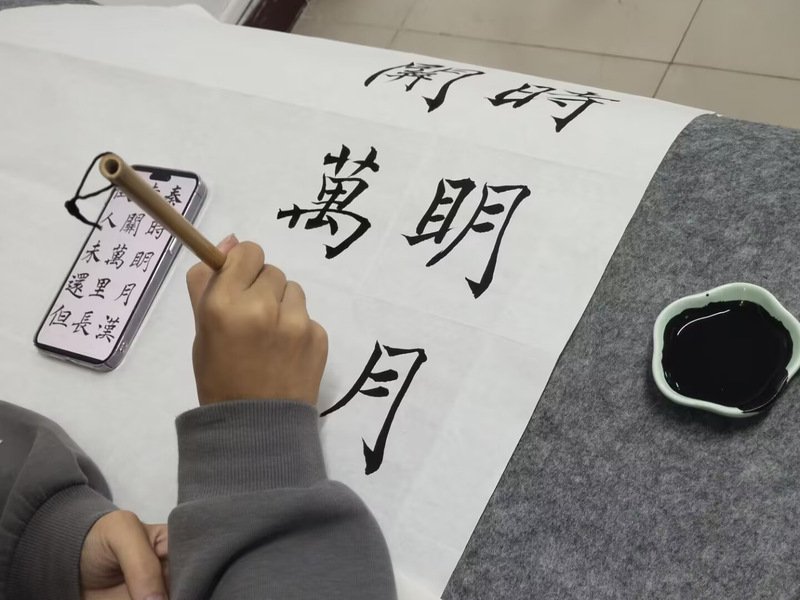 時明月
關萬
秦時明月漢
關萬里長
人未還但